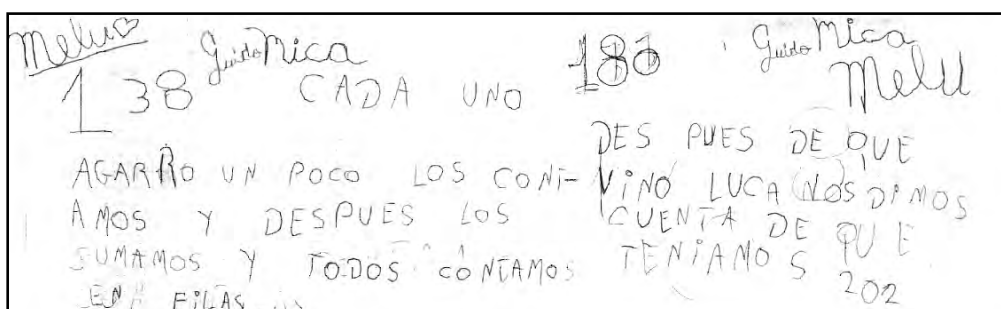 Melu Guido Mica
138 CADA UNO
AGARRO UN POCO LOS CONT-
AMOS Y DESPUES LOS
SUMAMOS Y TODOS CONTAMOS
EN FILAS
Guido Mica
Melu
DES PUES DE QUE
VINO LUCA NOS DIMOS
CUENTA DE QUE
TENIAMOS
202